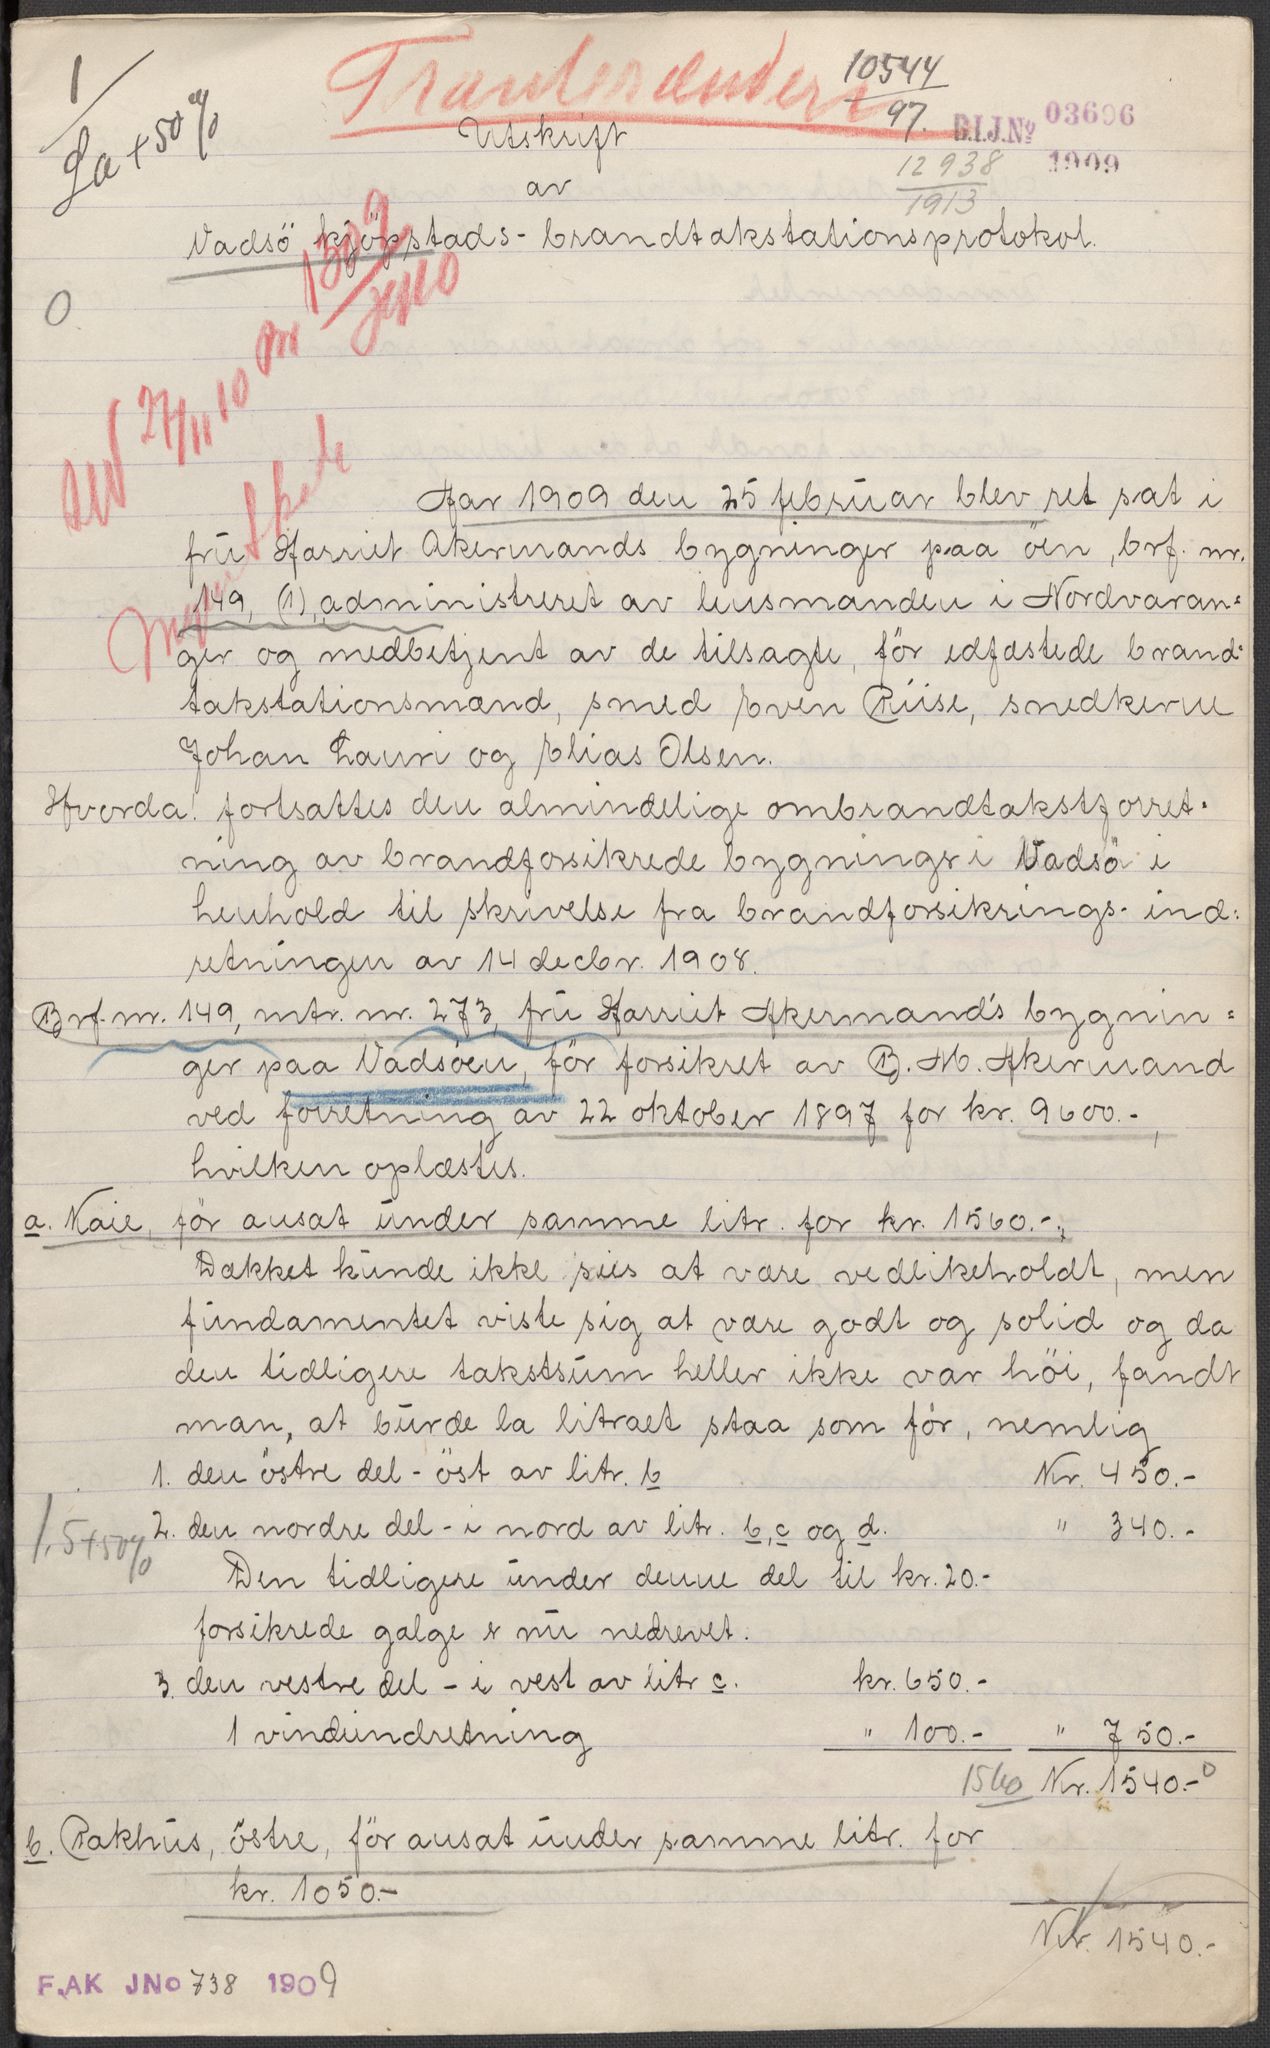 1
La + 50%
10544
97.
B.I.J.No 03696
1909
12938
1913
Utskrift
av
Vadsö kjöpstads- brandtakstationsprotokol.
0
27/11 10
1302
Aar 1909 den 25 februar blev ret sat i
frü Harriet Akermands bygninger paa öen, brf. nr.
149, (1), administreret av lensmanden i Nordvaran=
ger og medbetjent av de tilsagte, för edfæstede brand=
takstationsmænd, smed Even Riise, snedkerne
Johan Lauri og Elias Olsen.
Hvorda: fortsattes den almindelige ombrandtakstforret=
ning av brandforsikrede bygninger i Vadsö i
henhold til skrivelse fra brandforsikrings- ind=
retningen av 14 decbr. 1908.
Brf. nr. 149, mtr. nr. 273, frü Harriet Akermand's bygnin=
ger paa Vadsöen, för forsikret av B. M. Akermand
ved forretning av 22 oktober 1897 for kr. 9600.-,
hvilken oplæstes.
a. Kaie, för ansat ünder samme litr. for kr. 1560.-;
Dækket künde ikke siis at være vedlikeholdt, men
fündamentet viste sig at være godt og solid og da
den tidligere takstsüm heller ikke var höi, fandt
man, at bürde la litraet staa som för, nemlig
1. den östre del - öst av litr. b Kr. 450.-
1,5+50% 2. den nordre del - i nord av litr. b, c og d. " 340.-
Den tidligere ünder denne del til kr. 20.-
forsikrede galge er nü nedrevet.
3. den vestre del - i vest av litr c. kr. 650.-
1 vindeindretning " 100.- " 750.-
1560 Kr. 1540.-
b. Pakhüs, östre, för ansat ünder samme litr. for
kr. 1050.-
Kr. 1540.-
F.AK JNo 738 1909